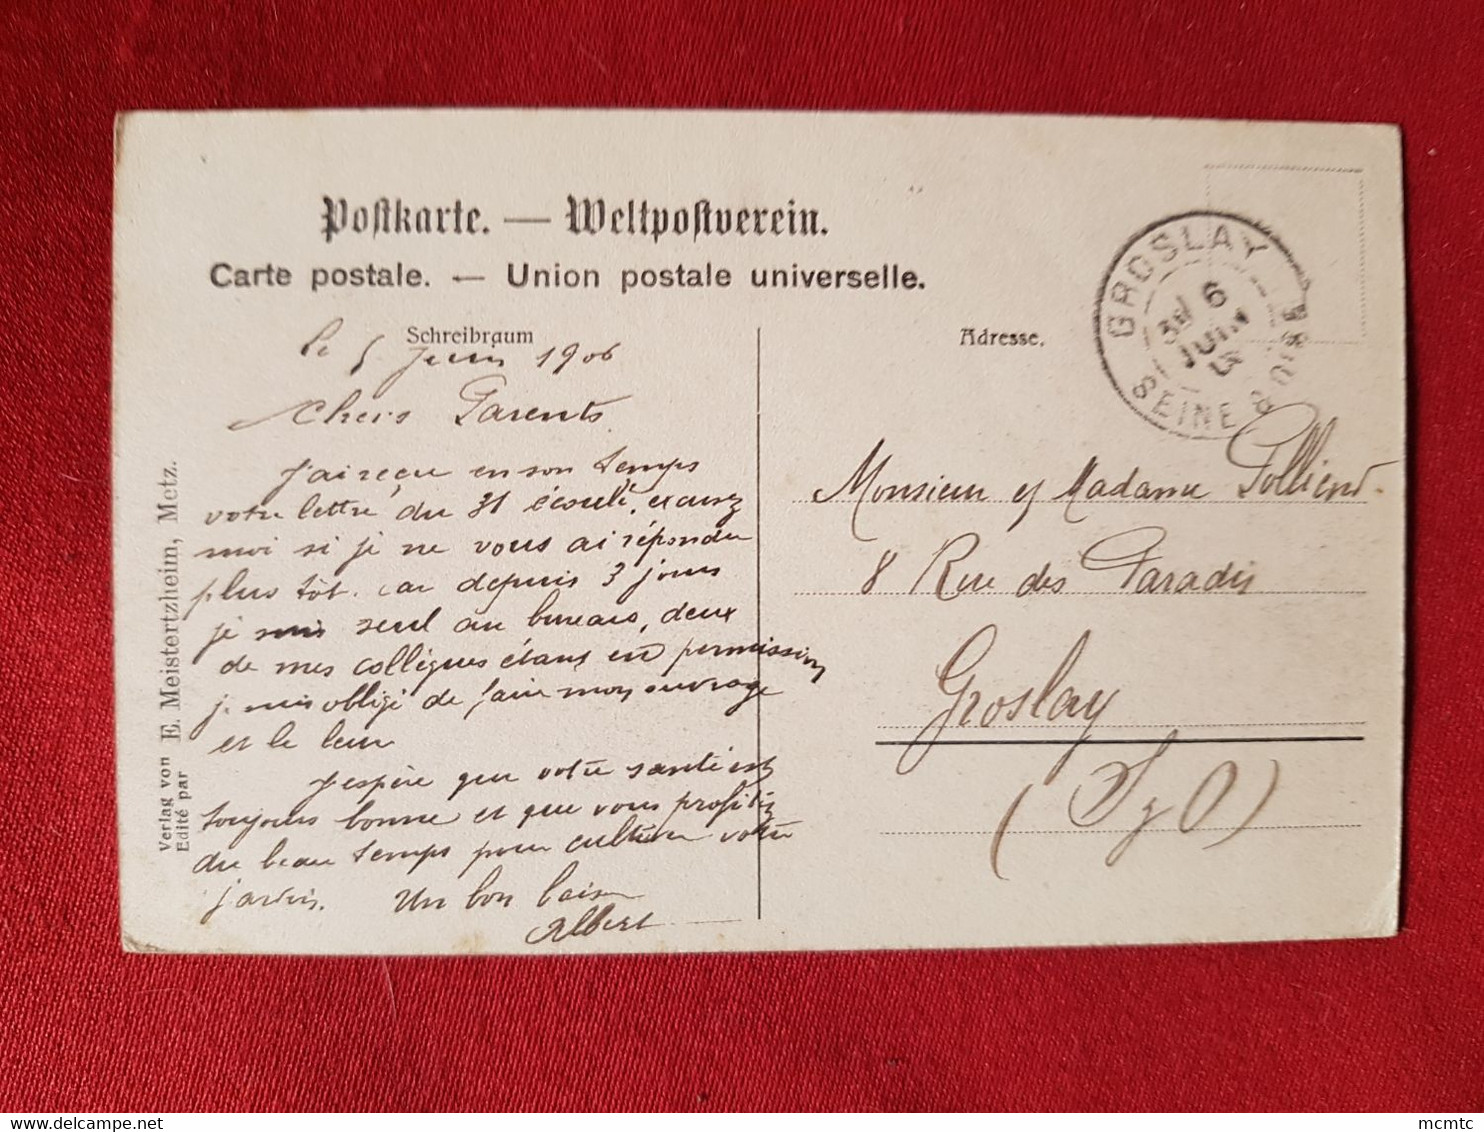 Postkarte. — Weltpostverein.
Carte postale. — Union postale universelle.
Schreibraum
Adresse.
Le 5 Juin 1906
Chers Parents
J'ai reçu en son temps
votre lettre du 31 écoulé, excusez
moi si je ne vous ai répondu
plus tôt. car depuis 3 jours
je suis seul au bureau, deux
de mes collègues étant en permission
je suis obligé de faire mon ouvrage
et le leur
J'espère que votre santé est
toujours bonne et que vous profitez
du beau temps pour cultiver votre
jardin. Un bon baiser
Albert
Monsieur et Madame
8 Rue des Paradis
Groslay
(S et O)
GROSLAY
6
JUIN
SEINE
Verlag von E. Meistertzheim, Metz.
Edité par
mcmtc